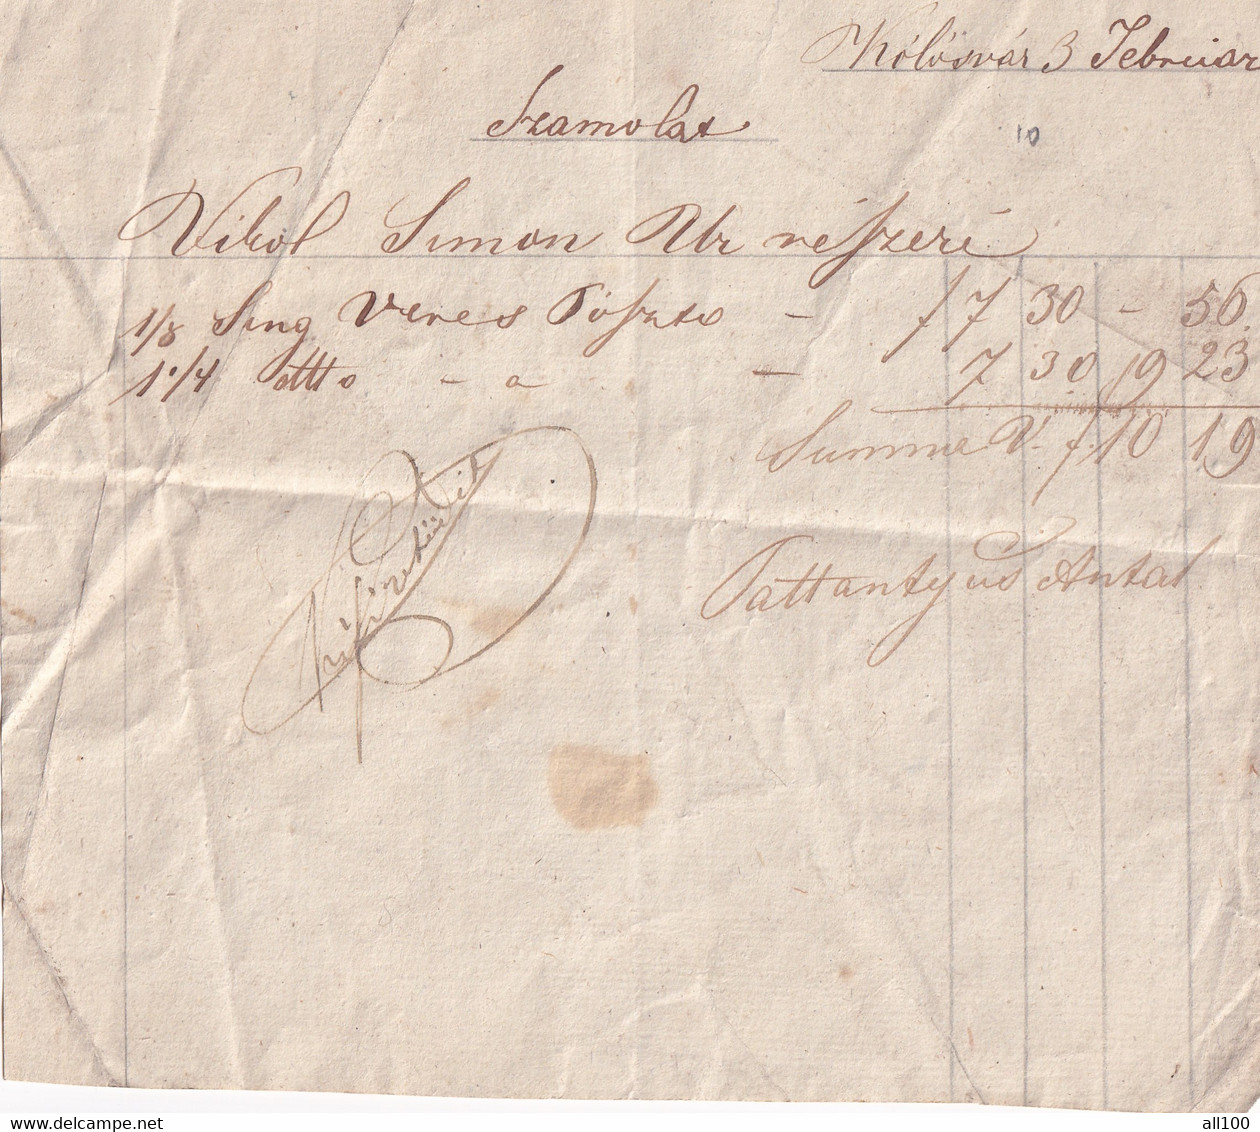 Kólósvár 3 Februar
Szamolat
10
Vikol Simon Ur részeri
1/8 Sing Veres Pósztó - f 7 30 - 56
1 1/4 detto - a - 7 30 9 23
Summe V. f. 10 19
Kifizettüdik
Pattantyus Antal
www.delcampe.net
all100